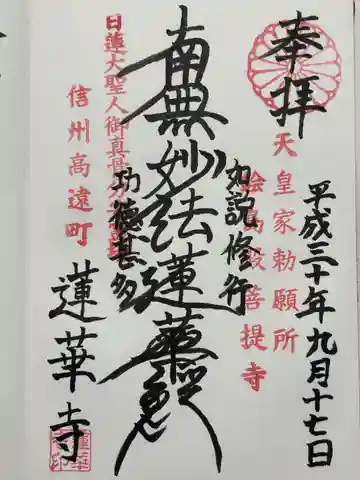 奉拝
天皇家勅願所
絵島殿菩提寺
平成三十年九月十七日
如説修行
南無妙法蓮華経
功徳甚多
日蓮大聖人御真骨分
信州高遠町
蓮華寺